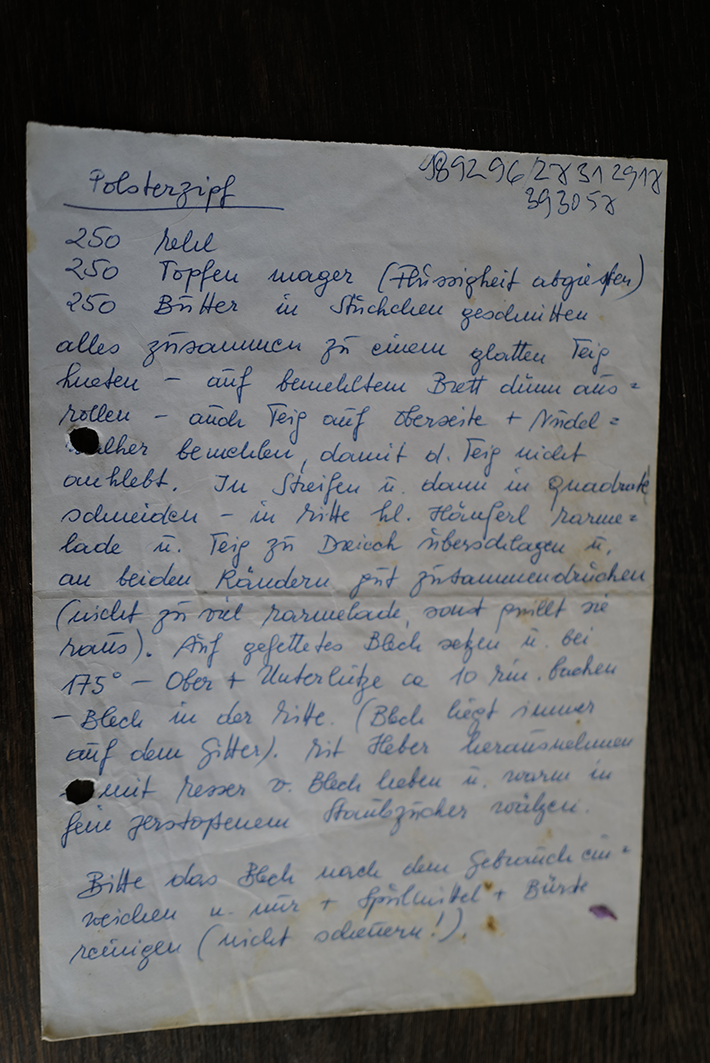 Polsterzipf
250 Mehl
250 Topfen mager (Flüssigkeit abgießen)
250 Butter in Stückchen geschnitten
alles zusammen zu einem glatten Teig
kneten - auf bemehltem Brett dünn aus=
rollen - auch Teig auf Oberseite + Nudel=
walker bemehlen, damit d. Teig nicht
anklebt. In Streifen u. dann in Quadrate
schneiden - in Mitte kl. Häuferl Marme=
lade u. Teig zu Dreieck überschlagen u.
an beiden Rändern gut zusammendrücken
(nicht zu viel Marmelade, sonst quillt sie
raus). Auf gefettetes Blech setzen u. bei
175° - Ober + Unterhitze ca 10 Min. backen
- Blech in der Mitte. (Blech liegt immer
auf dem Gitter). Mit Heber herausnehmen
mit Messer v. Blech heben u. warm in
fein zerstoßenem Staubzucker wälzen.
Bitte das Blech nach dem Gebrauch ein=
weichen u. nur + Spülmittel + Bürste
reinigen (nicht scheuern!).